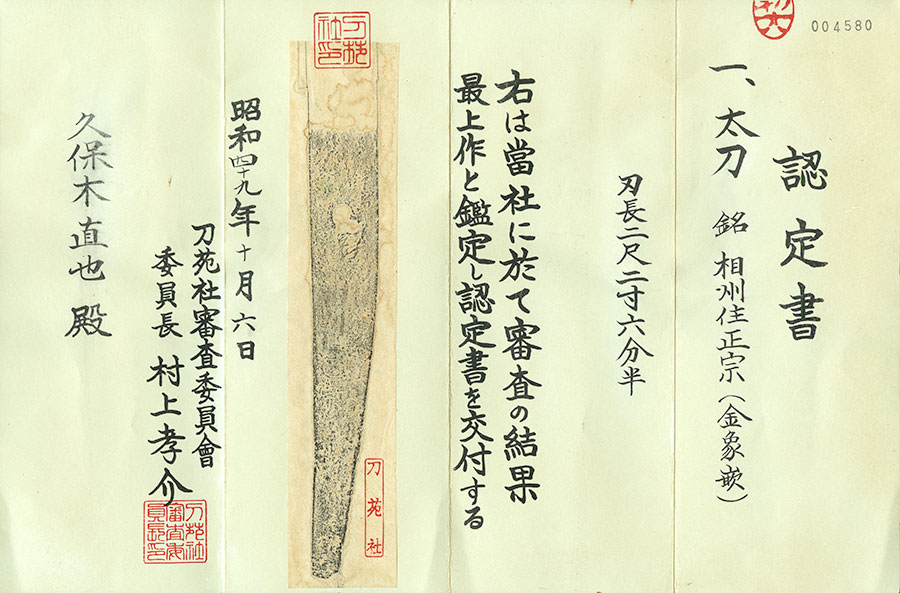 004580
認定書
一、太刀 銘 相州住正宗(金象嵌)
刃長二尺二寸六分半
右は當社に於て審査の結果
最上作と鑑定し認定書を交付する
刀苑社印
刀苑社
昭和四十九年十月六日
刀苑社審査委員會
委員長 村上孝介
刀苑社審査委員長印
久保木直也 殿